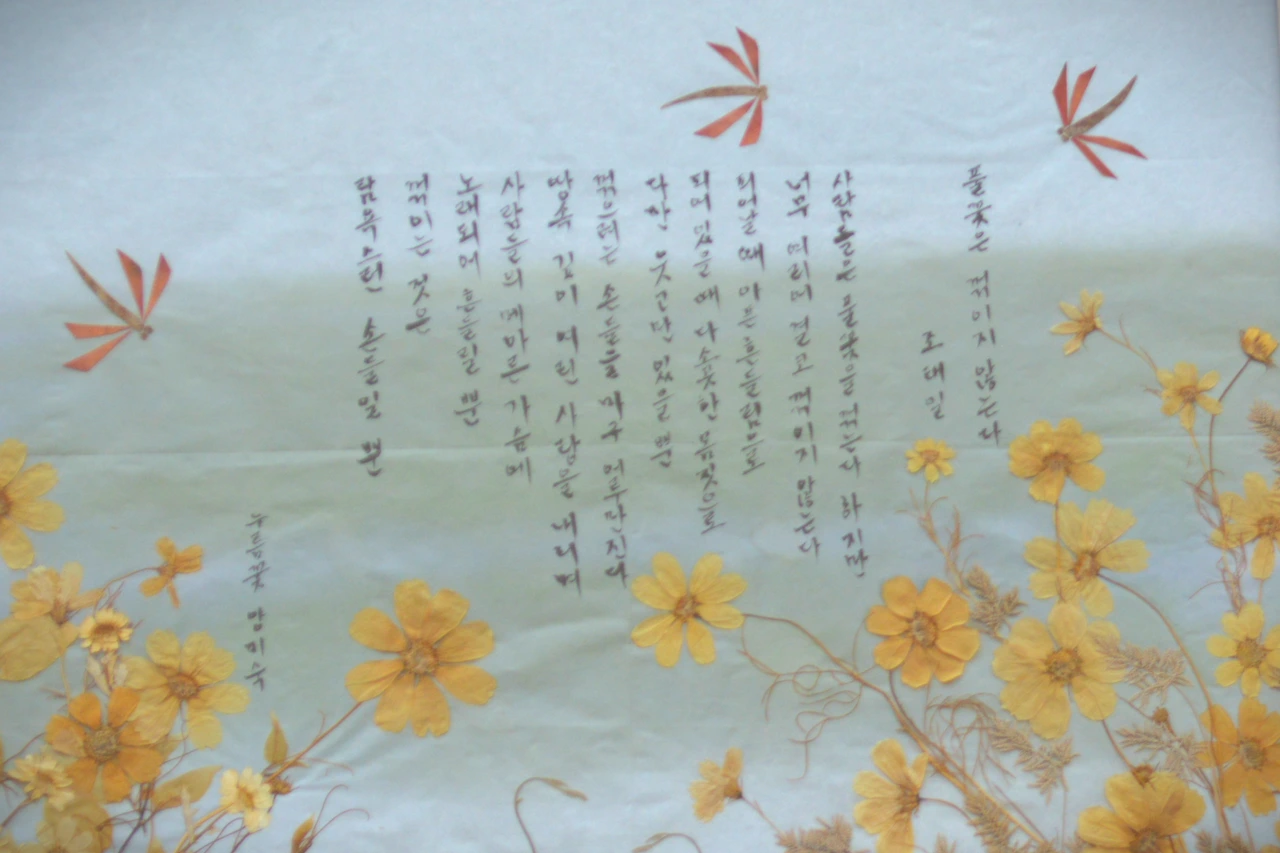 풀꽃은 꺾이지 않는다
조태일
사람들은 풀꽃을 꺾는다 하지만
너무 여리어 결코 꺾이지 않는다
피어날 때 아픈 흔들림으로
피어 있을 때 다소곳한 몸짓으로
다만 웃고만 있을 뿐
꺾으려는 손들을 마구 어루만진다
땅속 깊이 여린 사랑을 내리며
사람들의 메마른 가슴에
노래되어 흔들릴 뿐
꺾이는 것은
탐욕스런 손들일 뿐